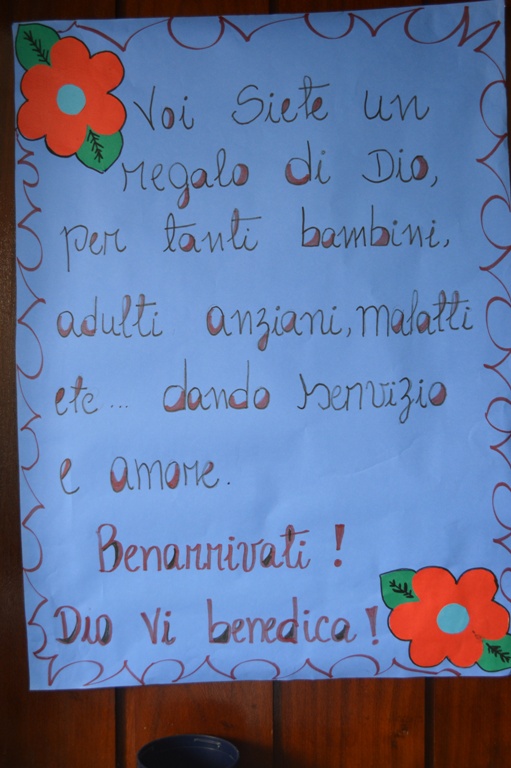 Voi Siete un
regalo di Dio,
per tanti bambini,
adulti anziani, malatti
etc... dando servizio
e amore.
Benarrivati !
Dio Vi benedica !